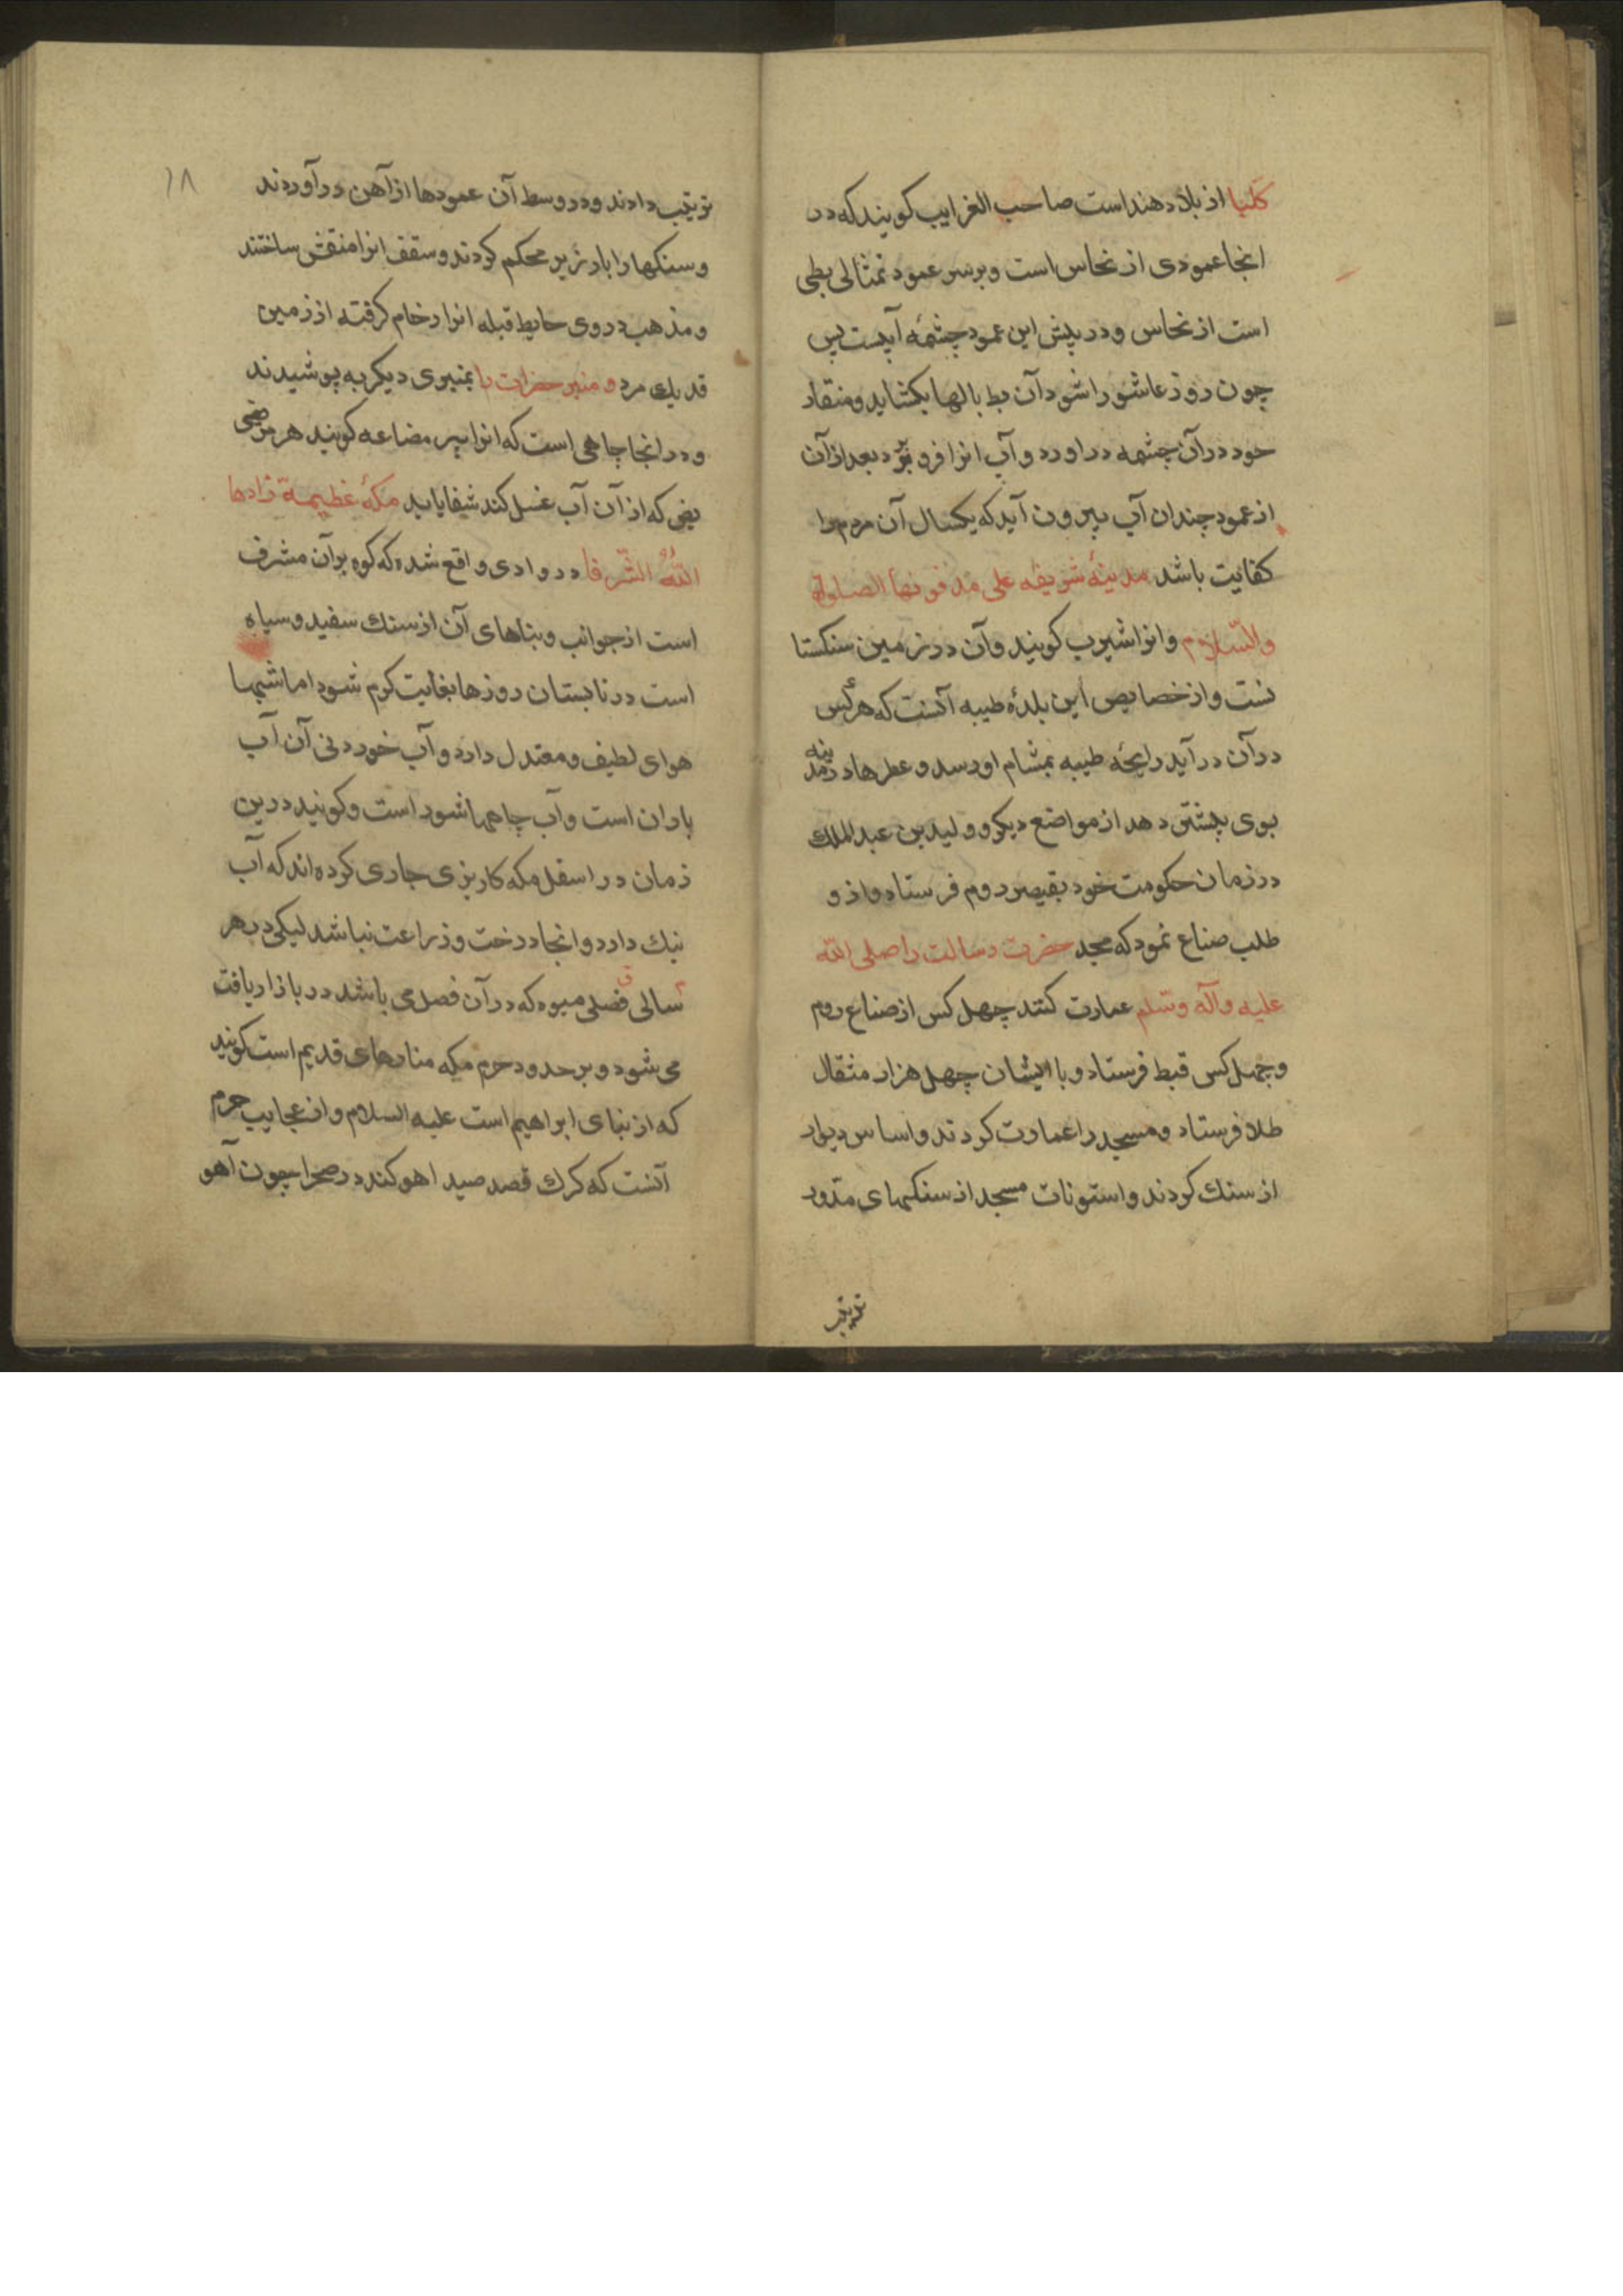 کلبا از بلاد هند است صاحب الغرایب کویند که در
انجا عمودی از نحاس است و برسر عمود تمثالی بطی
است از نحاس و در پیش این عمود چشمه آبیست پس
چون روز عاشورا شود آن بط بالها بکشاید و منقار
خود در آن چشمه در اورد و آب انرا فرو برد بعد از آن
از عمود چندان آب بیرون آید که یکسال آن مردم را
کفایت باشد مدینهٔ شریفه علی مدفونها الصلوة
والسّلام و انرا یثرب کویند و آن در زمین سنکستا
نست و از خصایص این بلدهٔ طیبه آنست که هر کس
در آن در آید رایحهٔ طیبه بمشام او رسد و عطرها در مدینه
بوی بیشتر دهد از مواضع دیکر و ولید بن عبدالملك
در زمان حکومت خود بقیصر روم فرستاد و از و
طلب صناع نمود که مسجد حضرت رسالت را صلی الله
علیه وآله وسّلم عمارت کنند چهل کس از صناع روم
و چهل کس قبط فرستاد و با ایشان چهل هزار مثقال
طلا فرستاد و مسجد را عمارت کردند و اساس دیوار
از سنك کردند و استونات مسجد از سنکهای مدّور
ترتیب
۱۸
ترتیب دادند و در وسط آن عمودها از آهن در آوردند
و سنکها را بارزیر محکم کردند و سقف انرا منقش ساختند
و مذهب و روی حایط قبله انرا رخام کرفته از زمین
قد یك مرد و منبر حضرات را بمنبری دیکر به پوشیدند
و در انجا چاهی است که انرا بیر مضاعه کویند هر مرضی
بض که از آن آب غسل کند شفا یابد مکهٔ عظیمة زادها
اللّهُ الشّرفا در وادی واقع شده که کوه برآن مشرف
است از جوانب و بناهای آن از سنك سفید و سیاه
است در تابستان روزها بغایت کرم شود اما شبها
هوای لطیف و معتدل دارد و آب خوردنی آن آب
باران است و آب چاهها شور است و کویند درین
زمان در اسفل مکه کاریزی جاری کرده اند که آب
نیك دارد و انجا درخت و زراعت نباشد لیکن در هر
سالی فصلی میوه که در آن فصل می باشد در بازار یافت
می شود و بر حدود حرم مکه منارهای قدیم است کویند
که از بنای ابراهیم است علیه السلام و از عجایب حرم
آنست که کرك قصد صید اهو کند در صحرا چون آهو